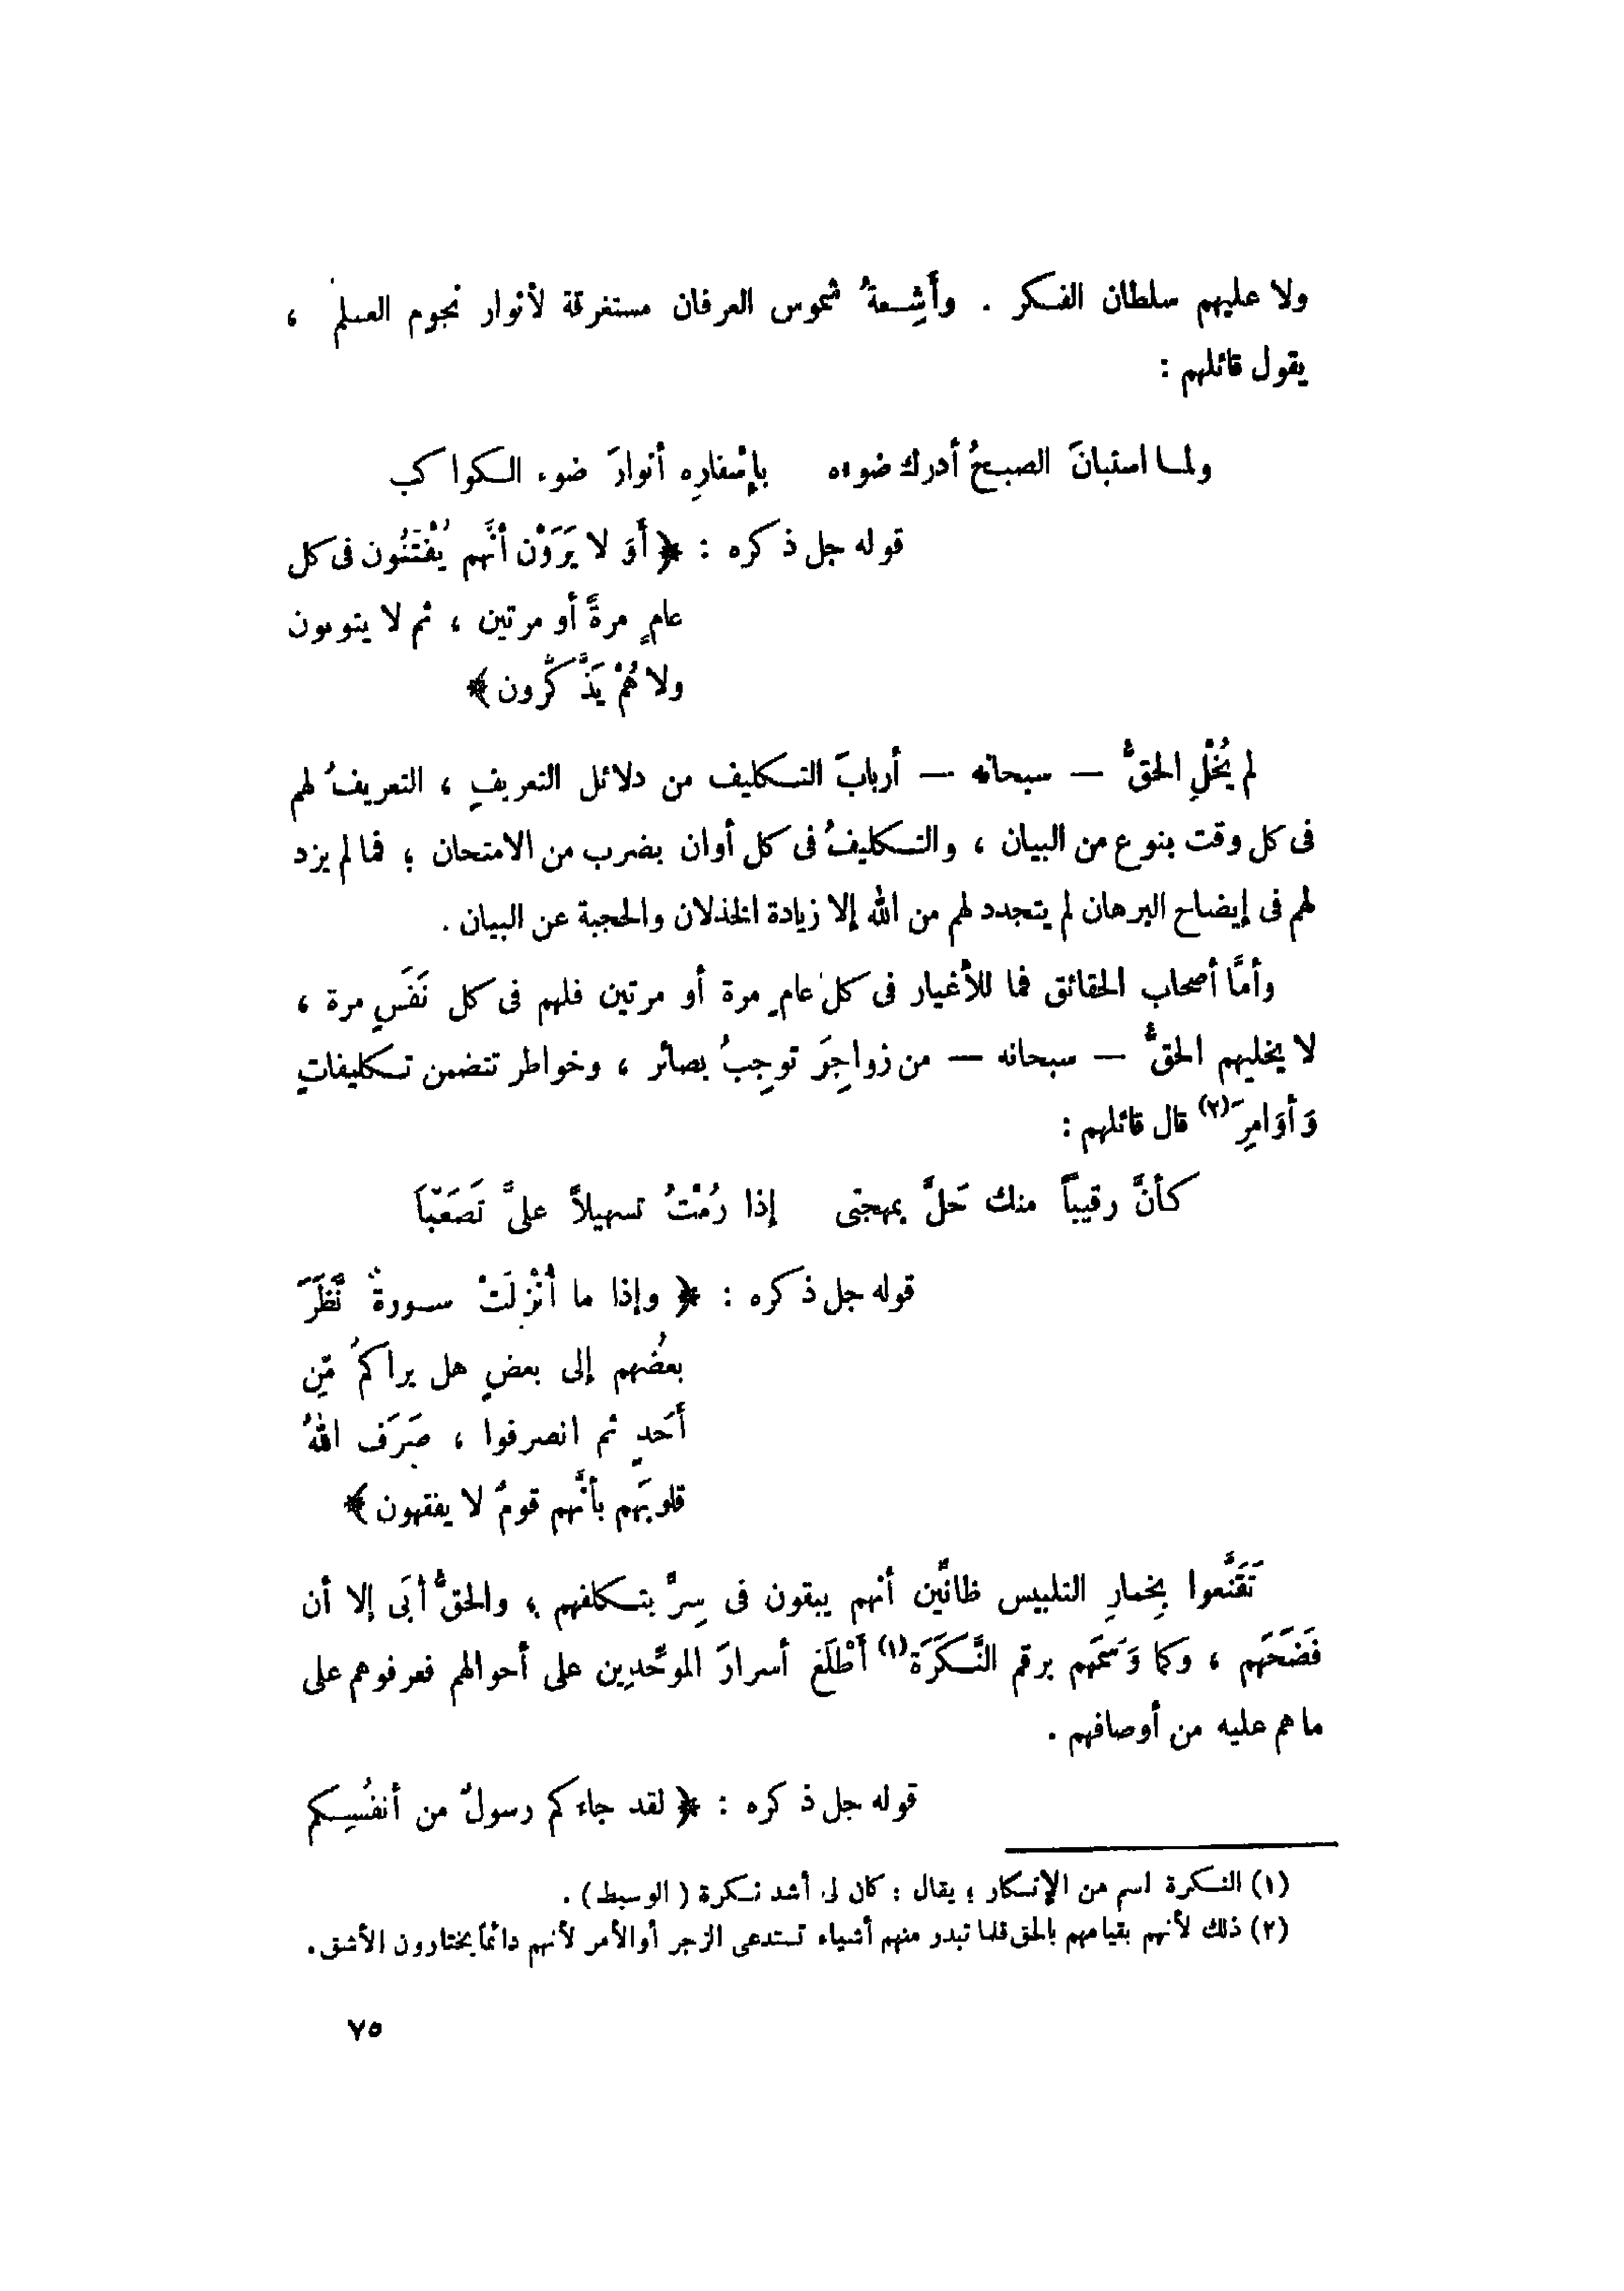 ولا عليهم سلطان الفكر . وأَشِعةُ شموس العرفان مستغرقة لأنوار نجوم العلم ،
يقول قائلهم :
ولما استبانَ الصبحُ أدرك ضوءه بإسْفارِه أنوارَ ضوء الكواكب
قوله جل ذكره : ﴿ أَوَ لا يَرَوْن أنَّهم يُفْتَنُون فى كل
عامٍ مرةً أو مرتين ، ثم لا يتوبون
ولا هُمْ يَذَّكَّرون ﴾
لم يُخْلِ الحقُّ — سبحانه — أربابَ التكليف من دلائل التعريفِ ، التعريفُ لهم
فى كل وقت بنوع من البيان ، والتكليفُ فى كل أوان بضرب من الامتحان ؛ فما لم يزد
لهم فى إيضاح البرهان لم يتجدد لهم من الله إلا زيادة الخذلان والحجبة عن البيان .
وأمَّا أصحاب الحقائق فما للأغيار فى كل عامٍ مرة أو مرتين فلهم فى كل نَفَسٍ مرة ،
لا يخليهم الحقُّ — سبحانه — من زواجِرَ توجِبُ بصائر ، وخواطر تتضمن تكليفاتٍ
وَأوَامِرَ (٢) قال قائلهم :
كأنَّ رقيباً منك حَلَّ بمهجتى إذا رُمْتُ تسهيلاً علىَّ تَصَعَّبَا
قوله جل ذكره : ﴿ وإذا ما أُنْزِلَتْ سورةٌ نَّظَرَ
بعضُهم إلى بعضٍ هل يراكم مِّن
أَحَدٍ ثم انصرفوا ، صَرَف اللهُ
قلوبَهم بأنَّهم قومٌ لا يفقهون ﴾
تَقَنَّعوا بِخمارِ التلبيس ظانِّين أنهم يبقون فى سِرٍّ بتكلفهم ، والحقُّ أبَى إلا أن
فَضَحَهم ، وكما وَسَمَهم برقم النَّكَرَة (١) أَطْلَعَ أسرارَ الموحِّدِين على أحوالهم فعرفوهم على
ما هم عليه من أوصافهم .
قوله جل ذكره : ﴿ لقد جاءكم رسولٌ من أنفُسِكم
(١) النكرة اسم من الإنكار ؛ يقال : كان لى أشد نكرة ( الوسيط ) .
(٢) ذلك لأنهم بقيامهم بالحق قلما تبدر منهم أشياء تستدعى الزجر أو الأمر لأنهم دائماً يختارون الأشق .
٧٥